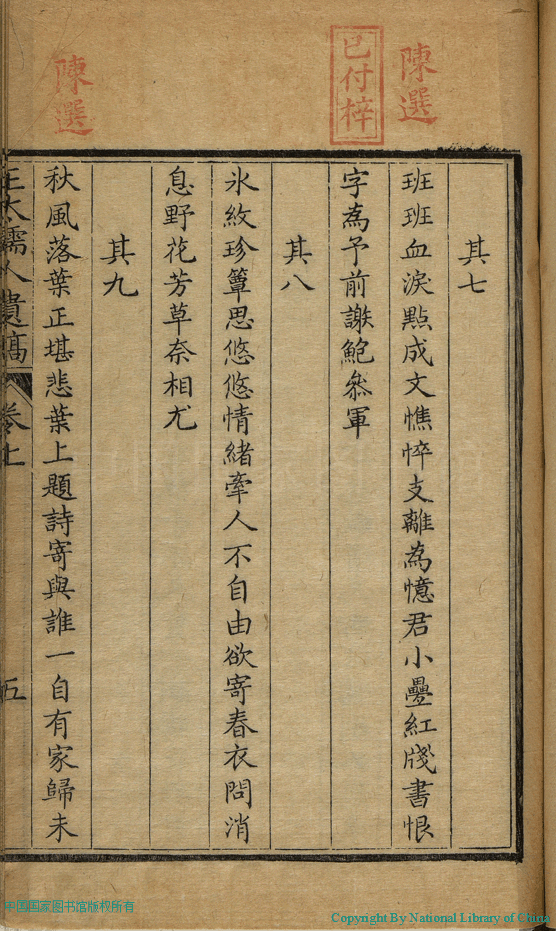 陳選
已付梓
陳選
其七
班班血淚點成文憔悴支離為憶君小疊紅牋書恨
字為予前謝鮑叅軍
其八
氷紋珍簟思悠悠情緒牽人不自由欲寄春衣問消
息野花芳草奈相尤
其九
秋風落葉正堪悲葉上題詩寄與誰一自有家歸未
孺人遺稿 卷七 五
中国国家图书馆版权所有
Copyright By National Library of China